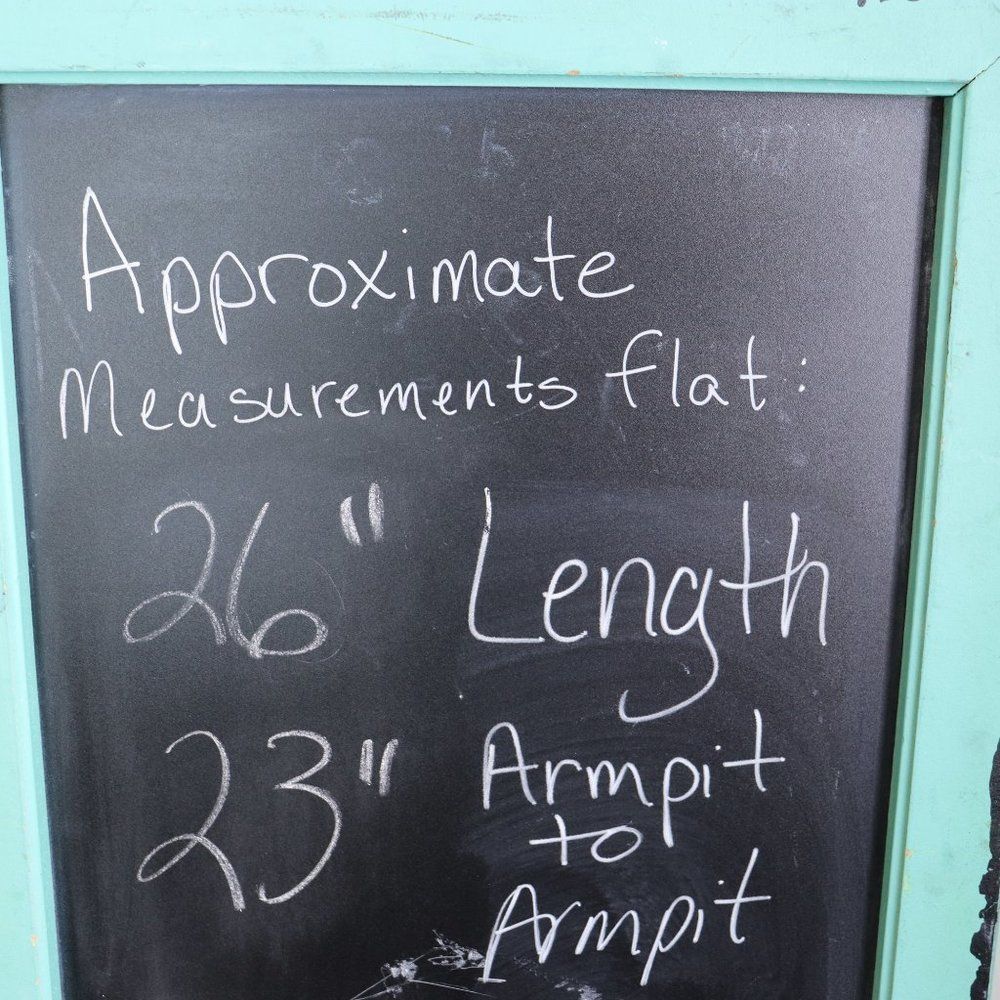 Approximate
Measurements flat:
26" Length
23" Armpit
to
Armpit